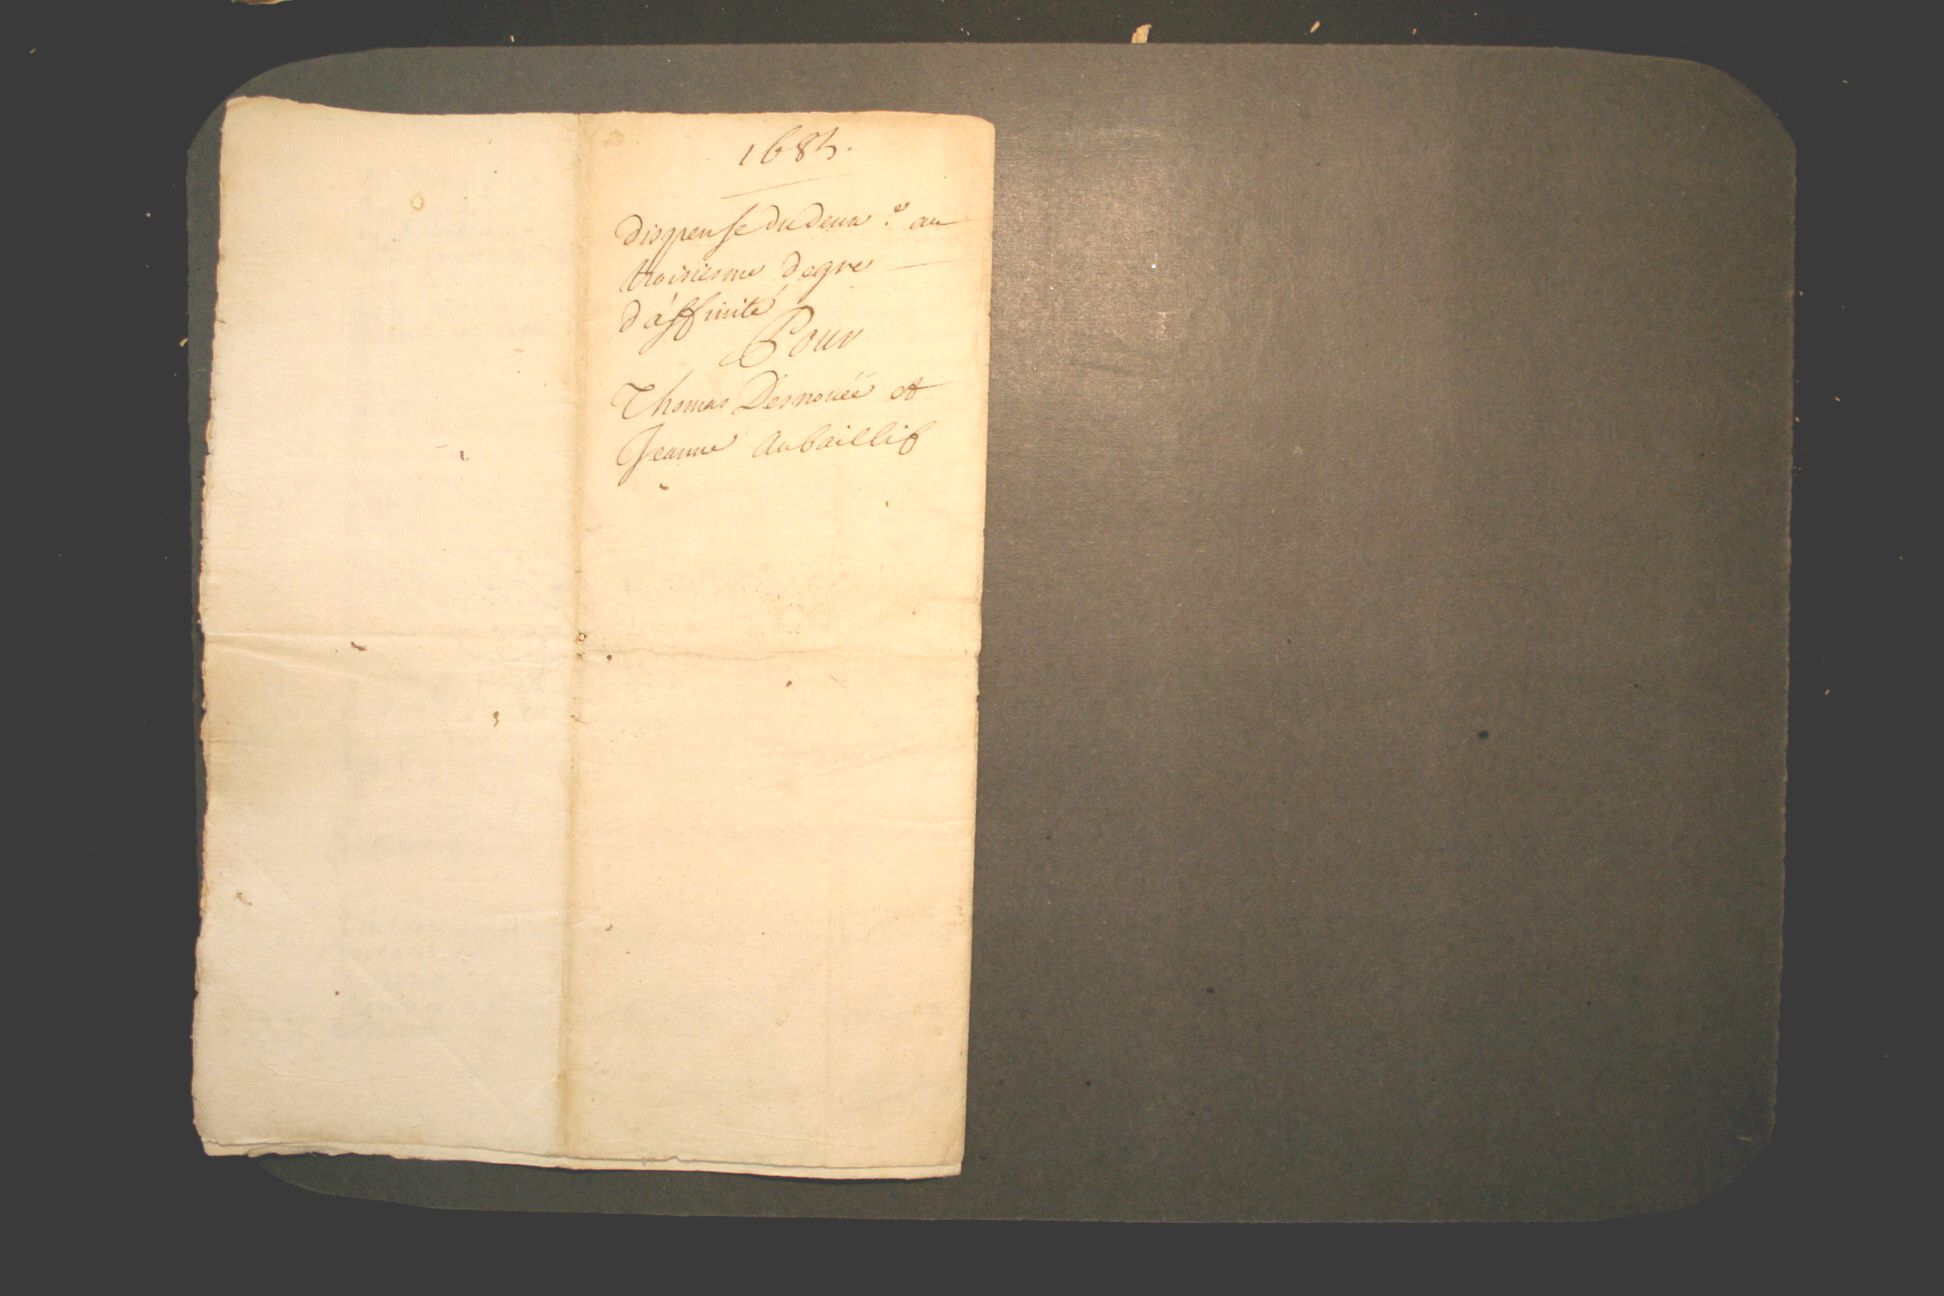 1685.
dispense du deux.e au
troisiesme degre
d'affinité
Pour
Thomas Desnouée et
Jeanne Aubaillif